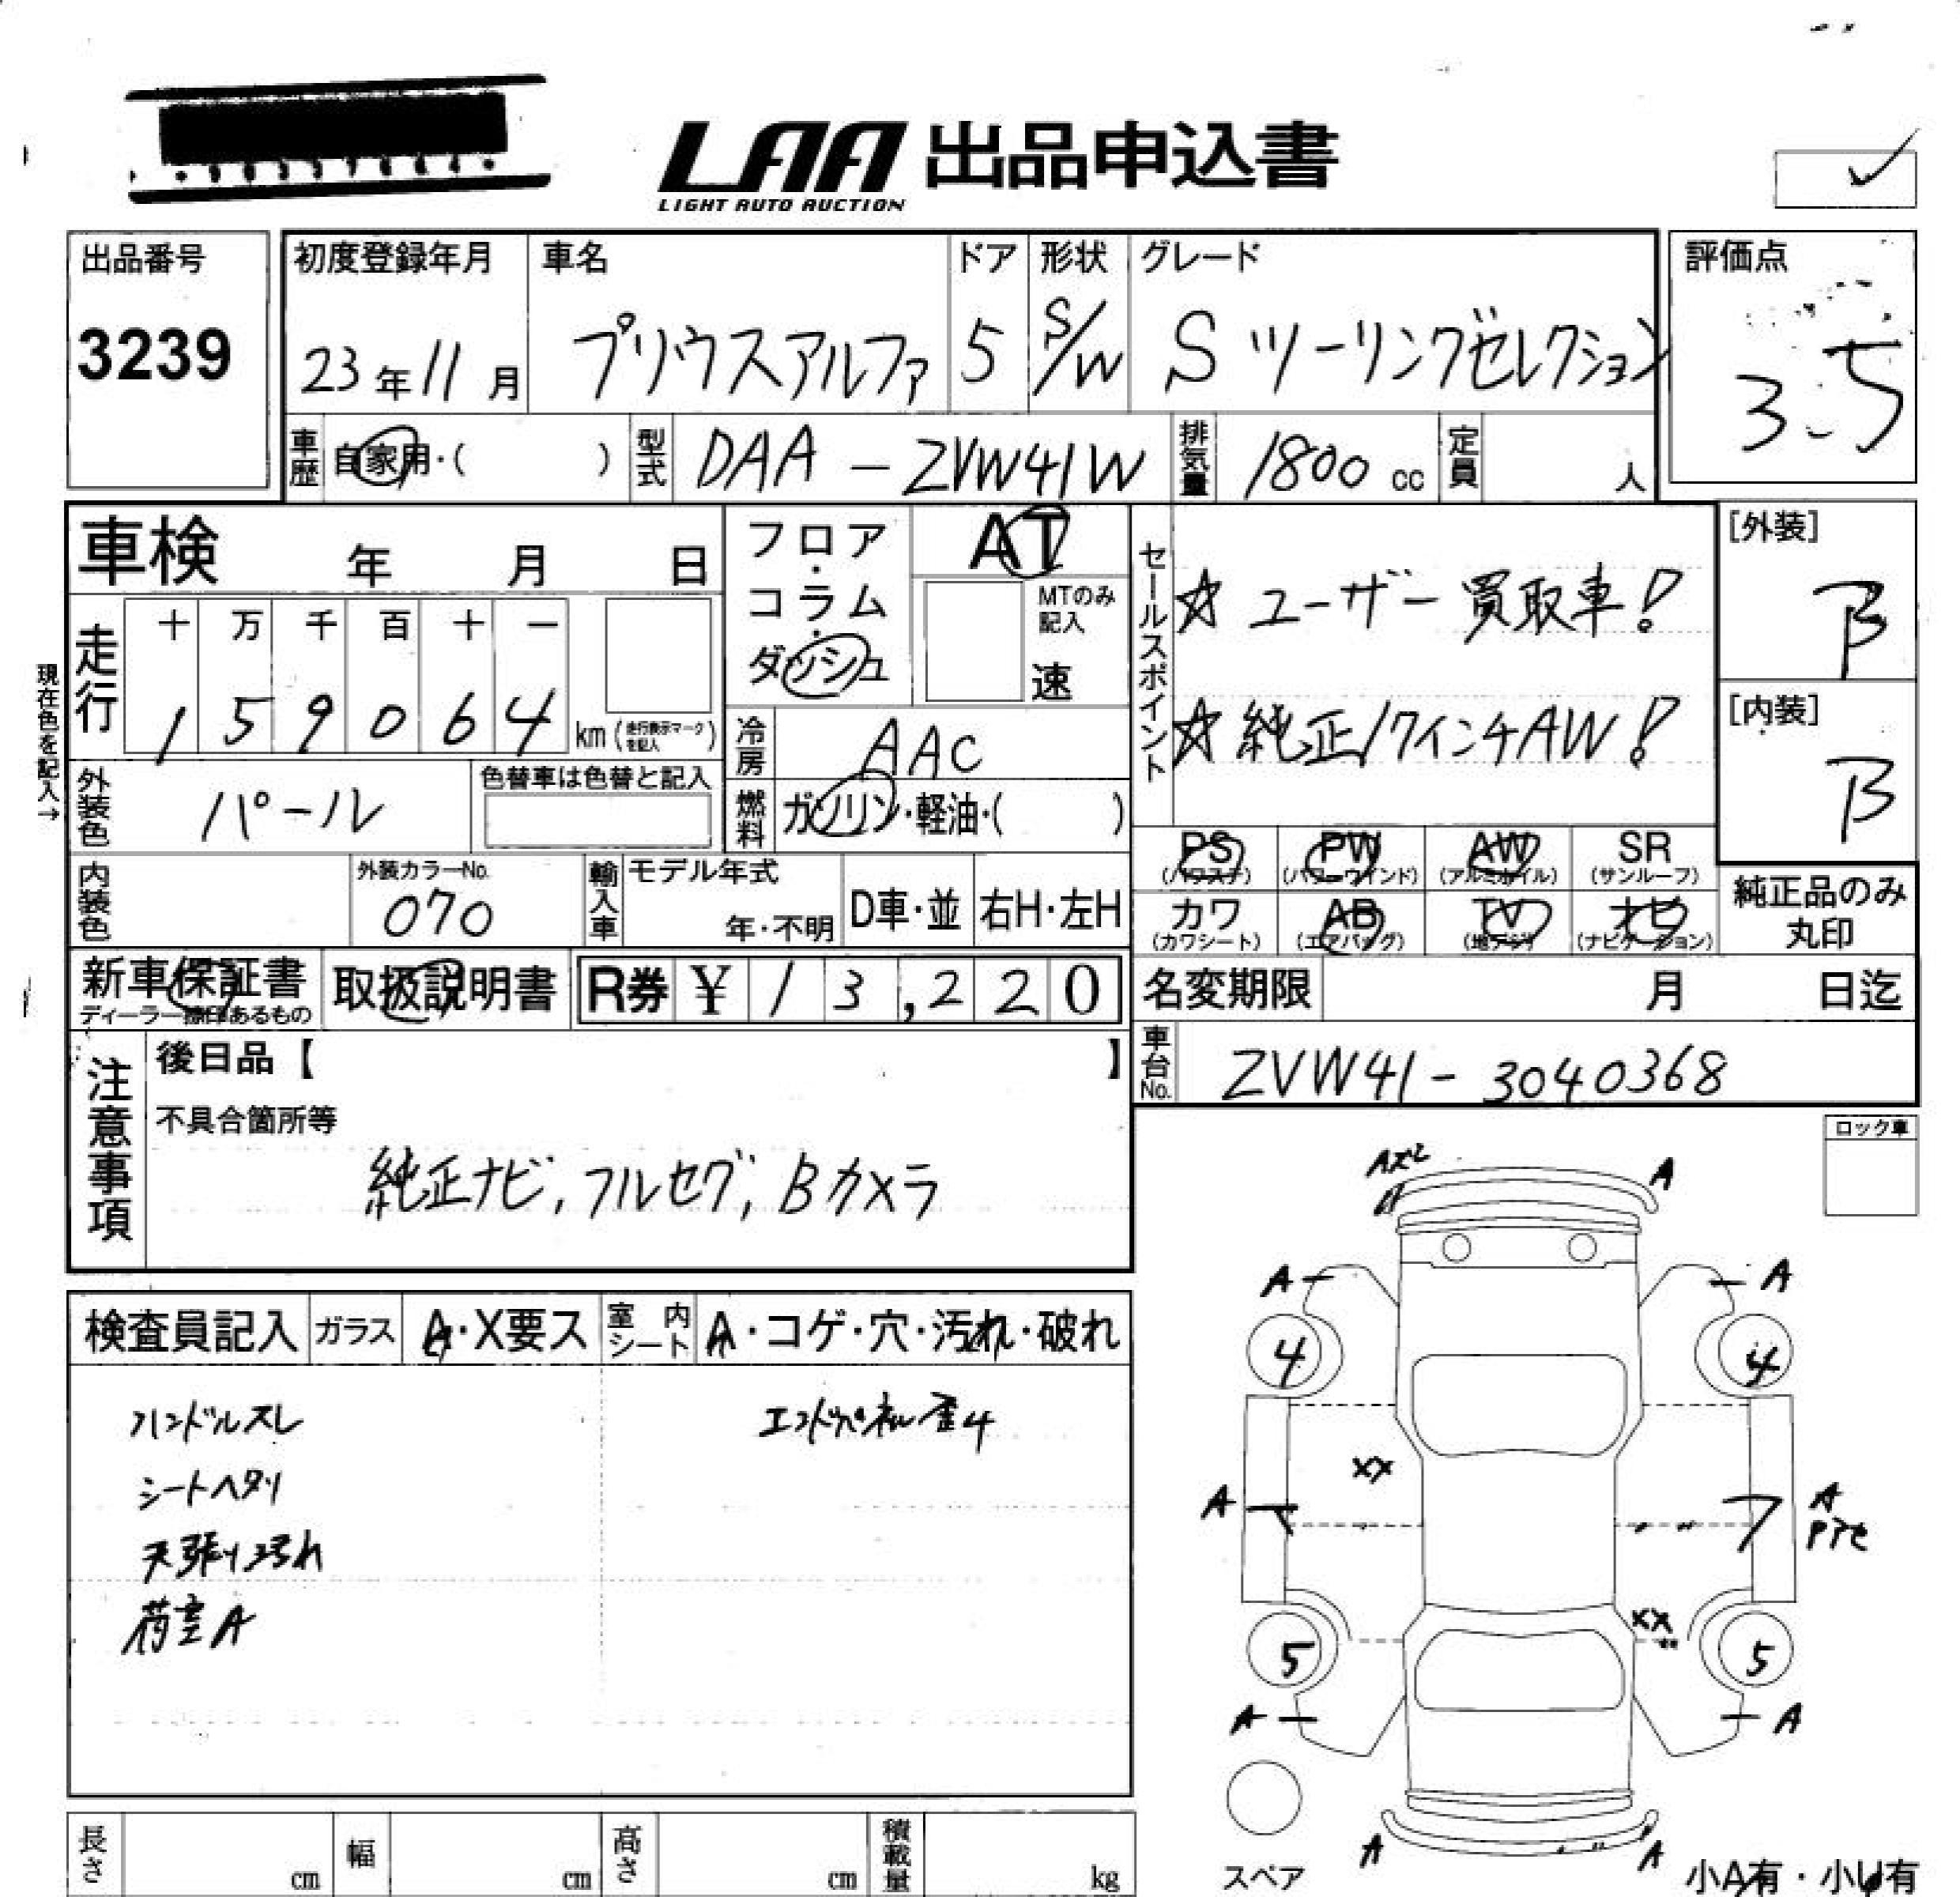 LAA 出品申込書
LIGHT AUTO AUCTION
出品番号
3239
初度登録年月
23年11月
車名
プリウスアルファ
ドア
5
形状
S/W
グレード
S ツーリングセレクション
評価点
3.5
車歴 自家用・( )
型式 DAA-ZVW41W
排気量 1800 cc
定員 人
車検 年 月 日
フロア・コラム・ダッシュ
AT
MTのみ記入
速
セールスポイント
☆ ユーザー買取車!
☆ 純正17インチAW!
[外装]
B
[内装]
B
現在色を記入→
走行
十 万 千 百 十 一
1 5 9 0 6 4 km (走行表示マークを記入)
冷房 AAC
外装色 パール
色替車は色替と記入
燃料 ガソリン・軽油・( )
PS (パワステ)
PW (パワーウインド)
AW (アルミホイル)
SR (サンルーフ)
カワ (カワシート)
AB (エアバッグ)
TV (地デジ)
ナビ (ナビゲーション)
純正品のみ丸印
内装色
外装カラーNo.
070
輸入車
モデル年式
年・不明
D車・並
右H・左H
新車保証書
取扱説明書
R券 ¥ 13,220
名変期限 月 日迄
車台No. ZVW41-3040368
注意事項
後日品【 】
不具合箇所等
純正ナビ, フルセグ, Bカメラ
ロック車
検査員記入
ガラス A・X要ス
室内シート A・コゲ・穴・汚れ・破れ
ハンドルスレ
エンドパネル歪4
シートヘタリ
天張り汚れ
荷室A
A
A
A
4
4
XX
A
A
XX
5
5
A
A
A
A
スペア
小A有・小U有
長さ cm
幅 cm
高さ cm
積載量 kg